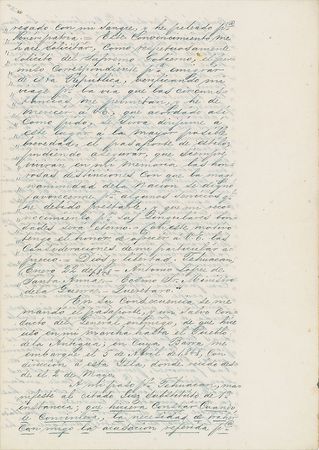 regado con mi Sangre, y he peleado pr.
tener patria = Este convencimiento me
hace solicitar, como respetuosamente
solicito del Supremo Gobierno, el per
miso correspondiente pa. emigrar
de esta República, verificando mi
viaje pr. la via que las circuns
tancias me permitan, he de
merecer á V.E. que acordado así
como pido, se sirva dirijirme á
este lugar á la mayor posible
brevedad, el pasaporte de
pudiendo asegurar, que siempre
vivirán en mi memoria las hon
rosas distinciones con que la mag
nanimidad de la Nacion se dignó
favorecerme pr. algunos servicios q.
he debido prestarle, y que mi recono
cimiento pr. sus singulares bon
dades será eterno = Con este motivo
tengo el honor de ofrecer á V.E. las
consideraciones de mi particular a
precio = Dios y libertad. Tehuacan,
Enero 22 de 1848 = Antonio Lopez de
Santa Anna = Excmo Sr. Ministro
de la Guerra = Queretaro."
En su consecuencia se me
mandó el pasaporte, y un Salvo con
ducto del General enemigo, de que hice
uso en mi marcha hasta el Pueblo
de la Antigua, en cuya Barra me
embarqué el 5 de Abril de 1848, con
direccion á esta Isla, donde
el 2 de Mayo.
A mi paso pr. Tehuacan, ma
nifesté al citado Juez substituto de 1a.
instancia; que hiciera constar cuando
le conviniera, la necesidad de
conmigo la acusacion referida pr.